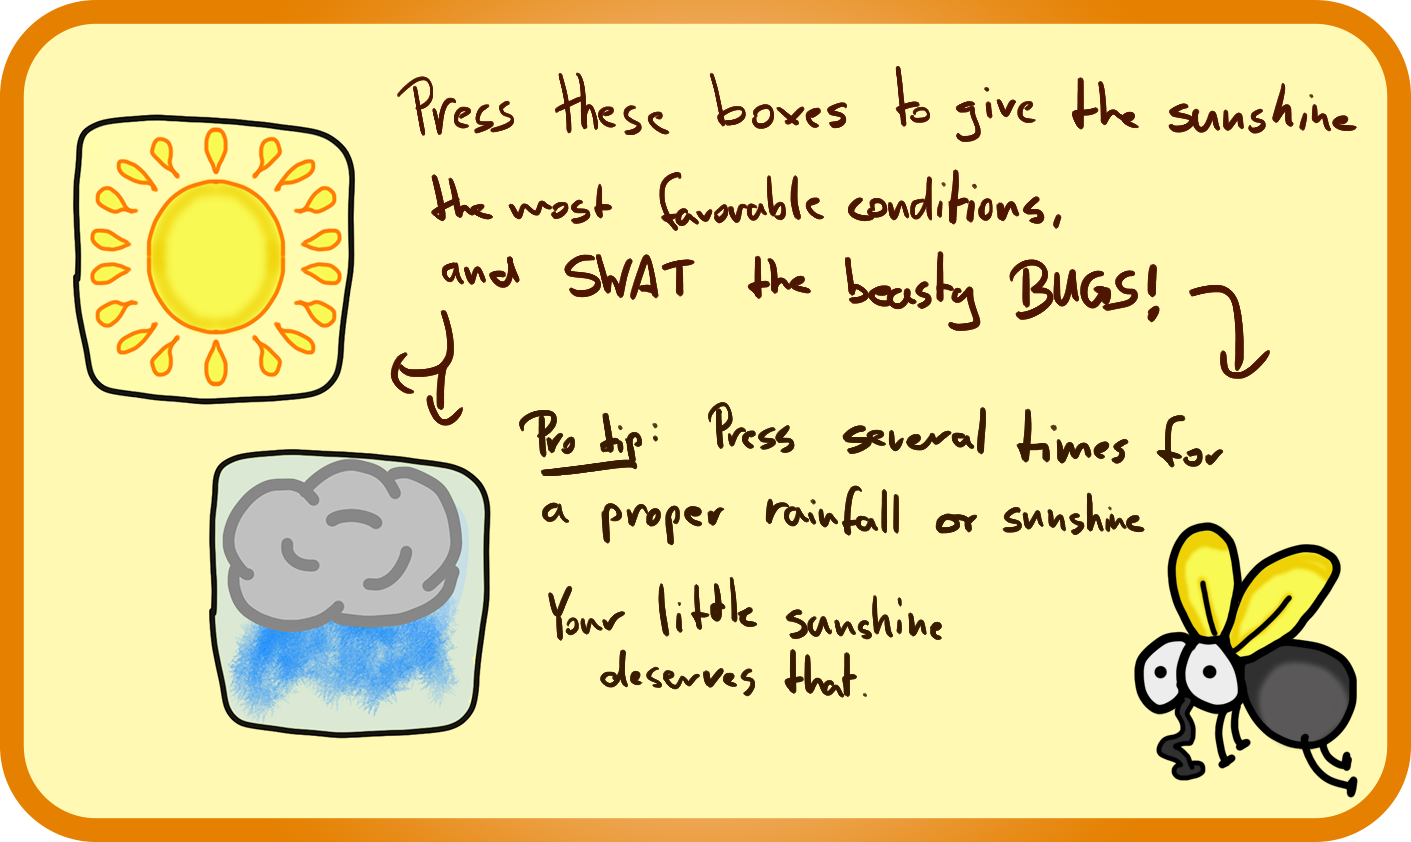 Press these boxes to give the sunshine
the most favorable conditions,
and SWAT the beasty BUGS!
Pro tip: Press several times for
a proper rainfall or sunshine
Your little sunshine
deserves that.